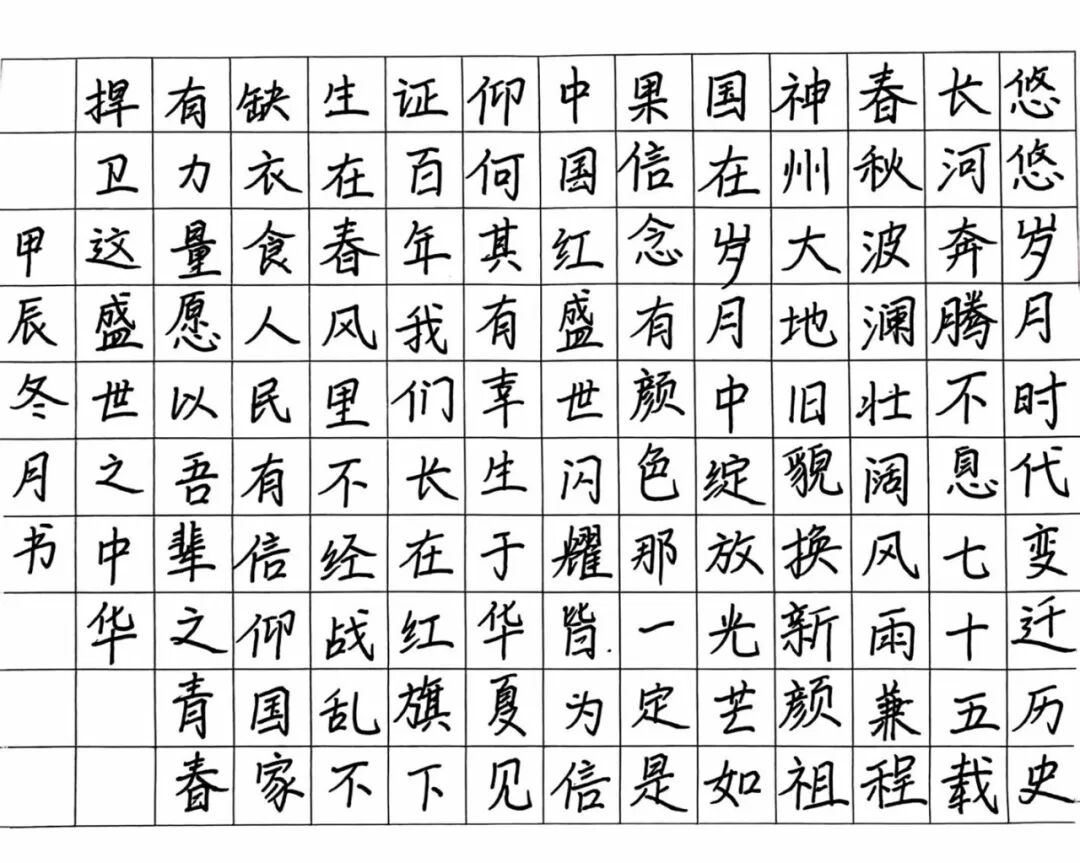 悠悠岁月时代变迁历史
长河奔腾不息七十五载
春秋波澜壮阔风雨兼程
神州大地旧貌换新颜祖
国在岁月中绽放光芒如
果信念有颜色那一定是
中国红盛世闪耀皆为信
仰何其有幸生于华夏见
证百年我们长在红旗下
生在春风里不经战乱不
缺衣食人民有信仰国家
有力量愿以吾辈之青春
捍卫这盛世之中华
甲辰冬月书